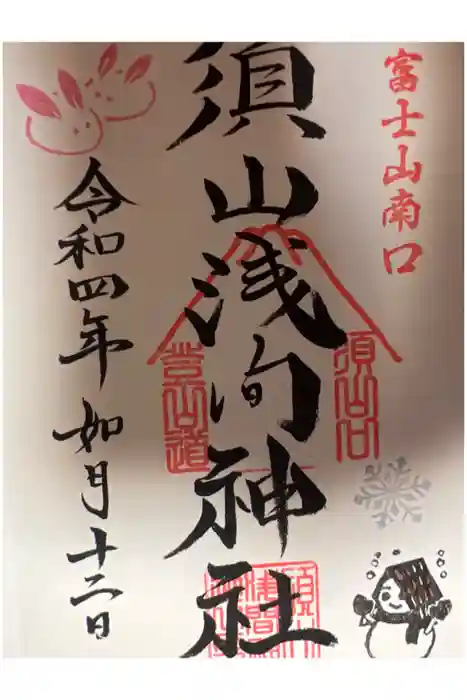 富士山南口
須山浅間神社
須山口
登山道
令和四年 如月十二日